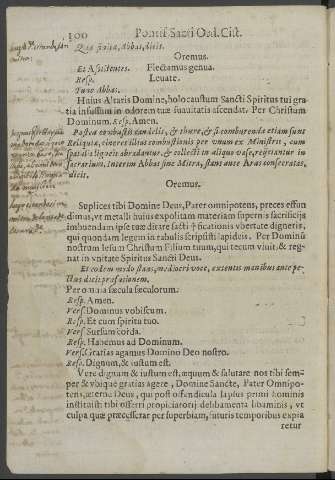 100 Pontif. Sacri Ord. Cist.
Qua finita, Abbas, dicit.
Oremus.
Et Assistentes. Flectamus genua.
Resp. Leuate.
Tunc Abbas.
Huius Altaris Domine, holocaustum Sancti Spiritus tui gra
tia infusum in odorem tuæ suauitatis ascendat. Per Christum
Dominum. Resp. Amen.
Postea combustis candelis, & thure, & si comburenda etiam sunt
Reliqua, cineres illius combustionis per vnum ex Ministris, cum
spatulis ligneis abradantur, & collecti in aliquo vase, reijciantur in
Interim Abbas sine Mitra, stans ante Aras consecratas,
dicit.
Oremus.
Supplices tibi Domine Deus, Pater omnipotens, preces effun
dimus, vt metalli huius expolitam materiam supernis sacrificijs
imbuendam ipse tuæ ditare sacti † ficationis vbertate digneris,
qui quondam legem in tabulis scripsisti lapideis. Per Dominū
nostrum Iesum Christum Filium tuum, qui tecum viuit, & reg-
nat in vnitate Spiritus Sancti Deus.
Et eodem modo stans, mediocri voce, extentis manibus ante pe-
ctus dicit præfationem.
Per omnia sæcula sæculorum.
Resp. Amen.
Vers. Dominus vobiscum.
Resp. Et cum spiritu tuo.
Vers. Sursum corda.
Resp. Habemus ad Dominum.
Vers. Gratias agamus Domino Deo nostro.
Resp. Dignum, & iustum est.
Vere dignum & iustum est, æquum & salutare nos tibi sem-
per & vbique gratias agere, Domine Sancte, Pater Omnipo-
tens, æterne Deus, qui post offendicula lapsus primi hominis
instituisti tibi offerri propiciatorij delibamenta libaminis, vt
culpa quæ præcesserat per superbiam, futuris temporibus expia
retur